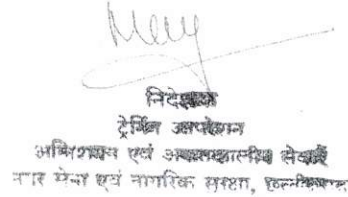 निदेशक
ट्रेनिंग ऑपरेशन
अग्निशमन एवं आपातकालीन सेवाएँ
नगर सेना एवं नागरिक सुरक्षा,